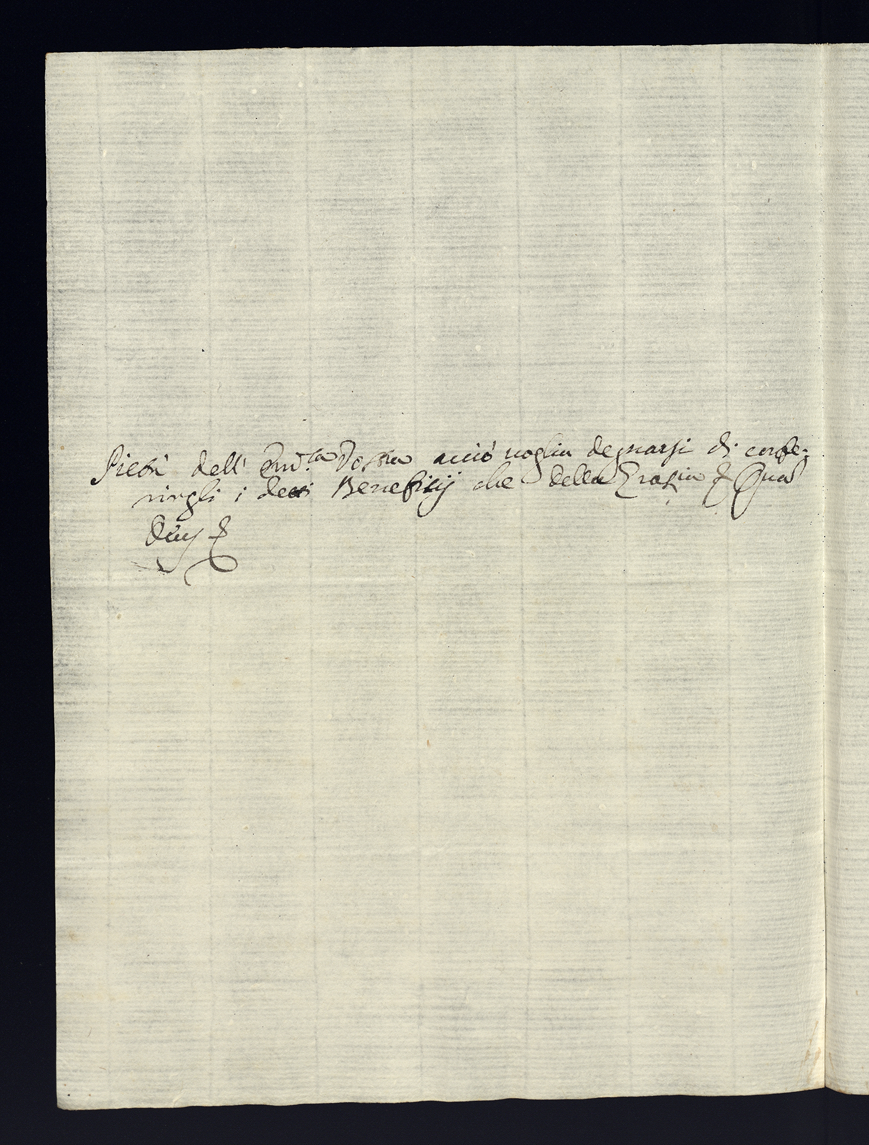 Pietà dell' Em.za Vostra acciò voglia degnarsi di confe-
rirgli i detti Beneficij che della Grazia &. Quas
Deus &.